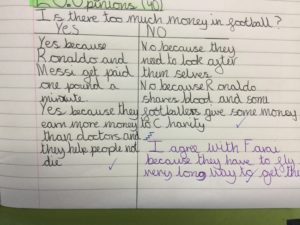 opinions (40)
Is there too much money in football?
YES
Yes because
Ronaldo and
Messi get paid
one pound a
minute.
Yes because they
earn more money
than doctors and
they help people not
die
NO
No because they
need to look after
them selves
No because Ronaldo
shares blood and som
footballers give some money
to Charity
I agree with
because they have to fly
very long way to get the